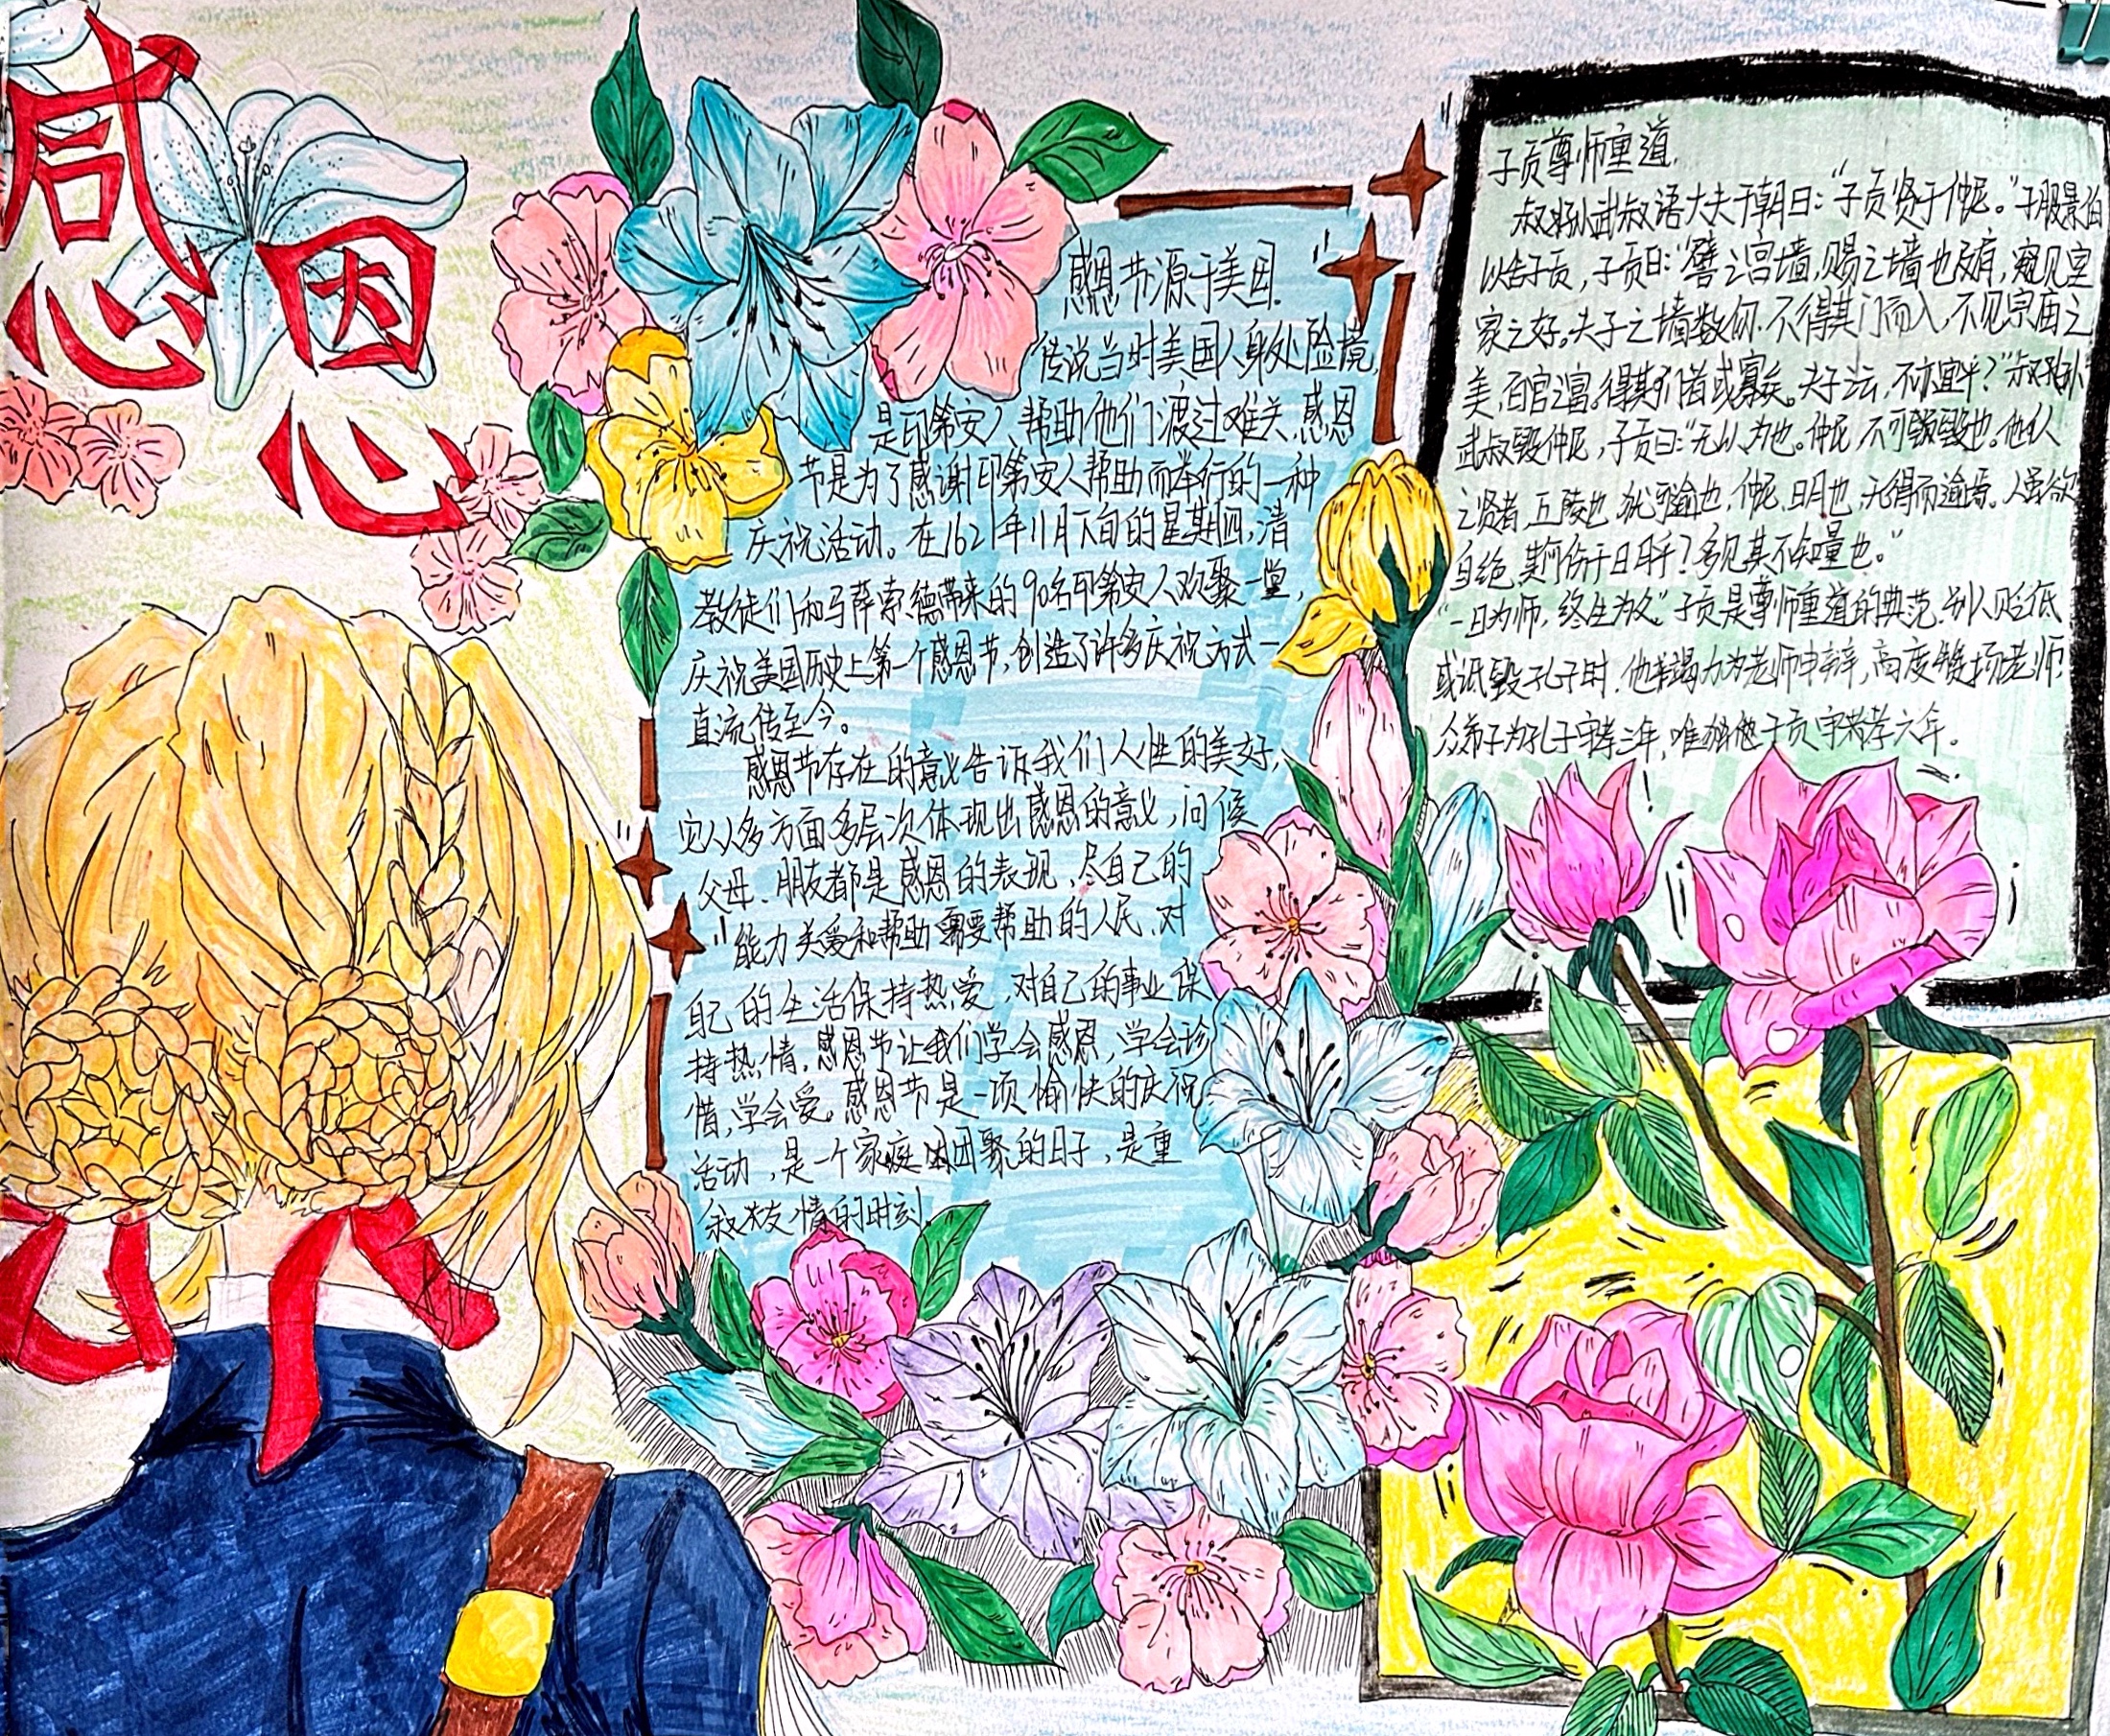 感恩
感恩节源于美国.
传说当时美国人身处险境,
是印第安人帮助他们渡过难关,感恩
节是为了感谢印第安人帮助而举行的一种
庆祝活动。在1621年11月下旬的星期四,清
教徒们和马萨索德带来的90名印第安人欢聚一堂,
庆祝美国历史上第一个感恩节,创造了许多庆祝方式一
直流传至今。
感恩节存在的意义告诉我们人性的美好,
它从多方面多层次体现出感恩的意义,问候
父母、朋友都是感恩的表现,尽自己的
能力关爱和帮助需要帮助的人民,对
自己的生活保持热爱,对自己的事业保
持热情,感恩节让我们学会感恩,学会珍
惜,学会爱,感恩节是一项愉快的庆祝
活动,是一个家庭团聚的日子,是重
叙友情的时刻.
子贡尊师重道.
叔孙武叔语大夫于朝曰:“子贡贤于仲尼。”子服景伯
以告子贡,子贡曰:“譬之宫墙,赐之墙也及肩,窥见室
家之好。夫子之墙数仞.不得其门而入,不见宗庙之
美,百官之富。得其门者或寡矣。夫子云,不亦宜乎?”叔孙
武叔毁仲尼,子贡曰:“无以为也。仲尼不可毁也。他人
之贤者,丘陵也,犹可逾也,仲尼,日月也,无得而逾焉。人虽欲
自绝,其何伤于日月乎?多见其不知量也。”
“一日为师,终生为父”子贡是尊师重道的典范.别人贬低
或诋毁孔子时.他竭力为老师申辩,高度赞扬老师,
众弟子为孔子守孝三年,唯独他子贡守孝六年。